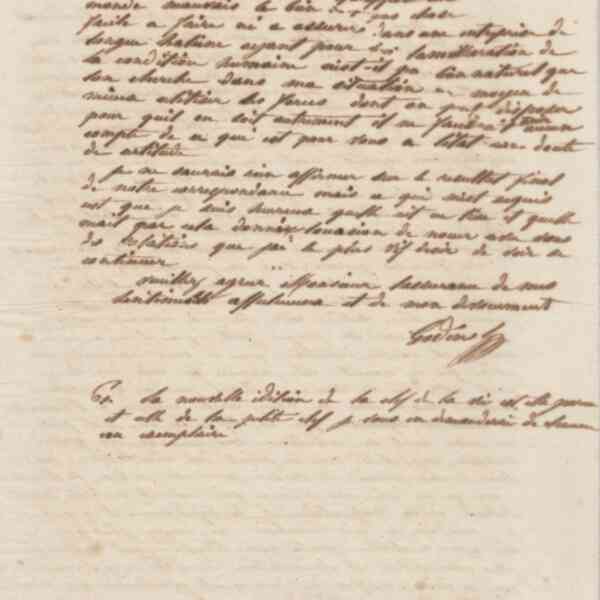 monde mauvais le bien
facile a faire ni a assurer dans une entreprise de
longue haleine ayant pour but l'amélioration de
la condition humaine n'est il pas bien naturel que
l'on cherche dans ma situation au moyen de
mieux utiliser les forces dont on peut disposer
pour qu'il en soit autrement il me faudrait
compte de ce qui est pour vous a l'état de doute
de certitude
je ne saurais rien affirmer sur le resultat final
de notre correspondance mais ce qui m'est acquis
est que je suis heureux qu'elle ait eu lieu et qu'elle
m'ait par cela donné l'occasion de nouer avec vous
des relations que j'ai le plus vif desir de voir se
continuer
veuillez agreer Monsieur l'assurance de mes
sentiments affectueux et de mon devouement
Godin
la nouvelle édition de la clef de la vie est elle parue
et celle de la petite clef je vous en demanderai de chacune
un exemplaire